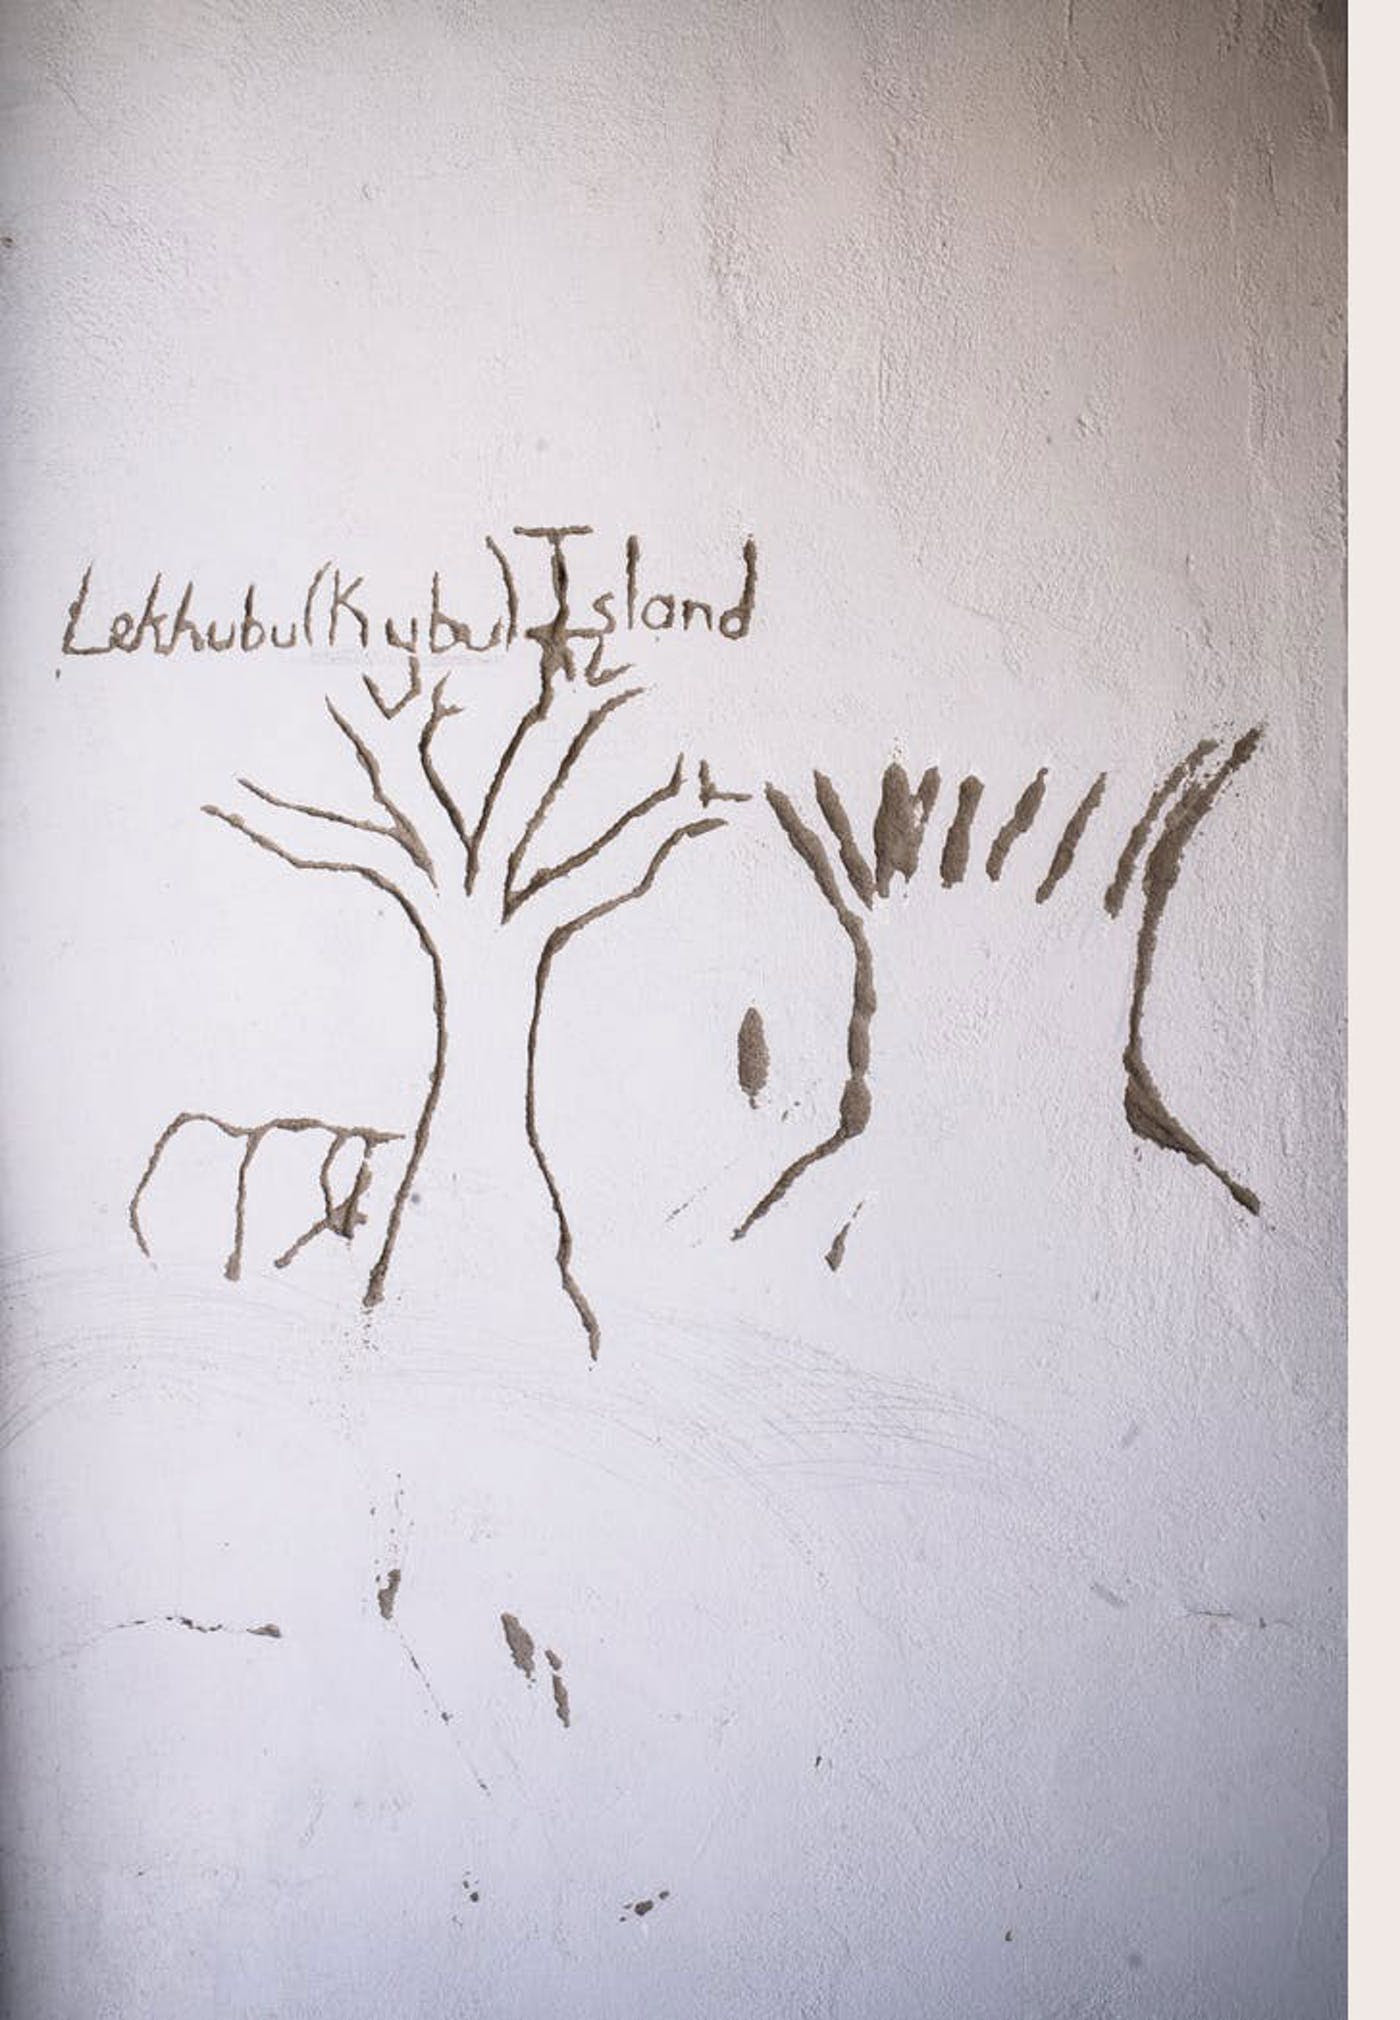 Lekhubu(Kybu) Island